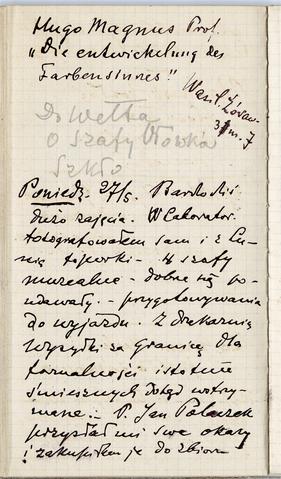 Hugo Magnus Prof.
„Die entwickelung des
Farbensinnes"
Wasil.
m. 7
Do Wełka
o szafy Ołówka
Szkło
Poniedz. 27/5.
dużo zajęcia. W Laborator.
fotografowałem sam i z Lu-
nią 4 szafy
muzealne - dobrze się po-
udawały. - przygotowywania
do wyjazdu. Z drukarnią
wysyłki za granicę dla
formalności istotnie
śmiesznych dotąd wstrzy-
mane. - P. Jan
przysłał mi swe okazy
i zakupiłem je do zbioru